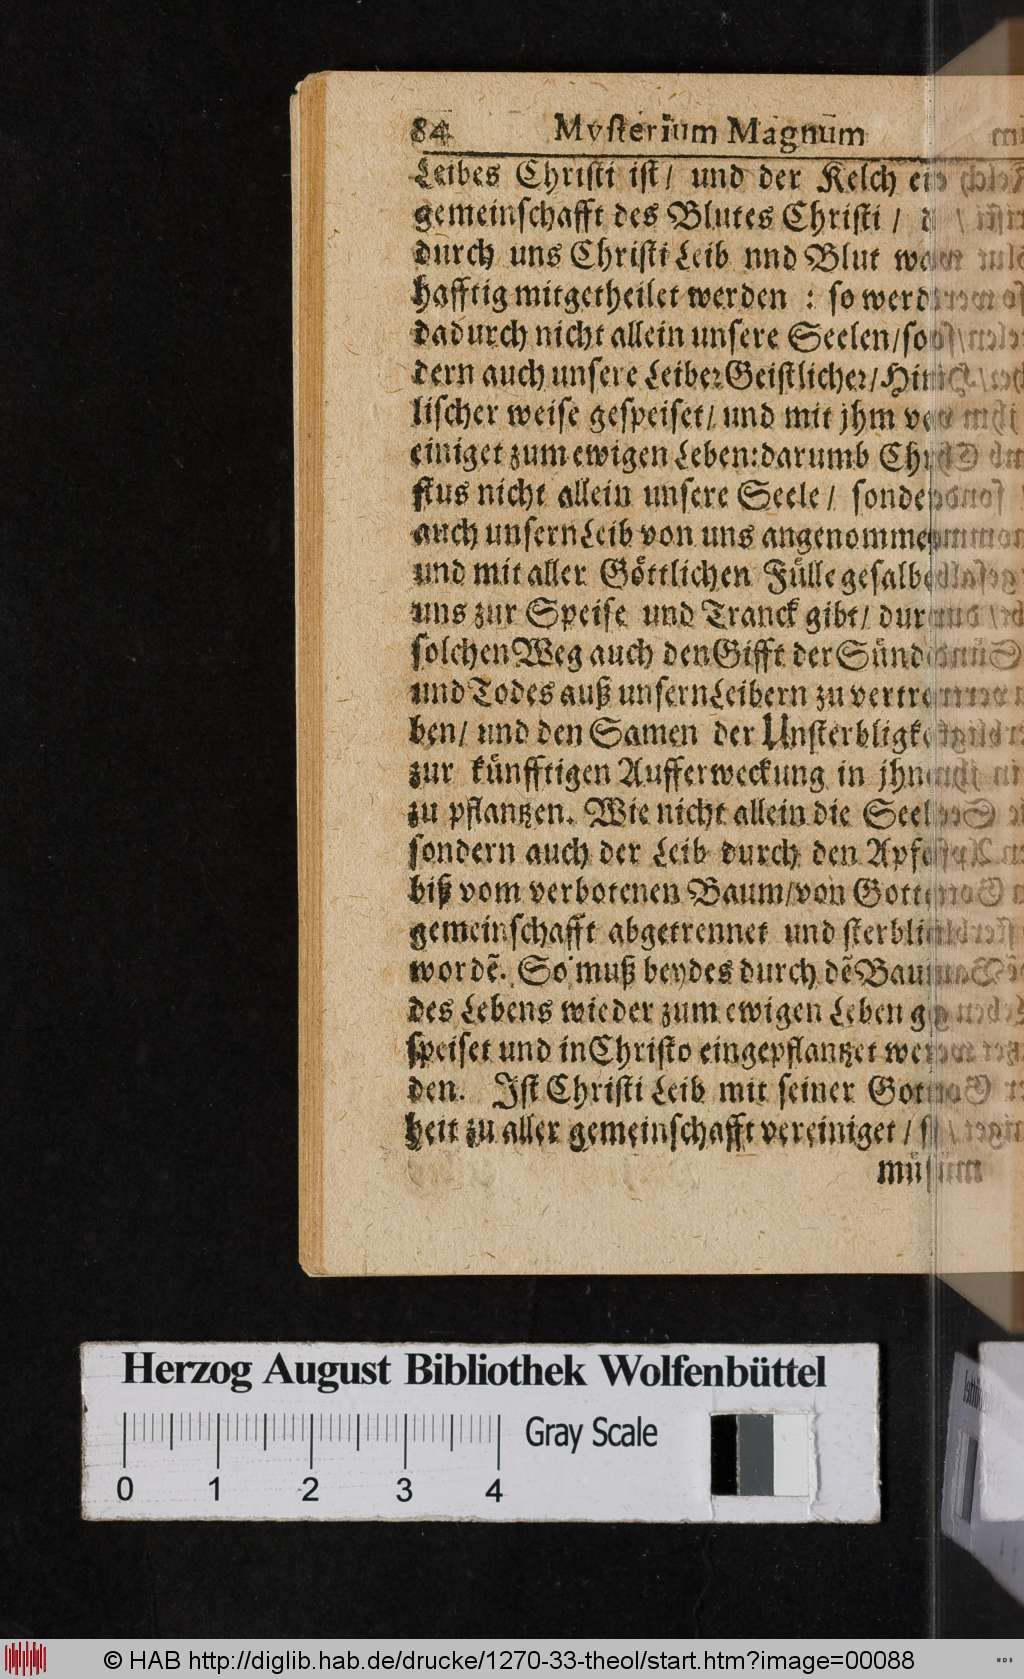 84 Mysterium Magnum
Leibes Christi ist/ und der Kelch
gemeinschafft des Blutes Christi /
durch uns Christi Leib nnd Blut
hafftig mitgetheilet werden : so
dadurch nicht allein unsere Seelen/
dern auch unsere Leiber Geistlicher/
lischer weise gespeiset/ und mit jhm
einiget zum ewigen Leben: darumb
stus nicht allein unsere Seele /
auch unsern Leib von uns
und mit aller Göttlichen Fülle
uns zur Speise und Tranck gibt/
solchen Weg auch den Gifft der
und Todes auß unsern Leibern zu
ben/ und den Samen der
zur künfftigen Aufferweckung in
zu pflantzen. Wie nicht allein die
sondern auch der Leib durch den
biß vom verbotenen Baum/ von
gemeinschafft abgetrennet und
wordẽ. So muß beydes durch dẽ
des Lebens wieder zum ewigen Leben
speiset und in Christo eingepflantzet
den. Ist Christi Leib mit seiner
heit zu aller gemeinschafft vereiniget /
Herzog August Bibliothek Wolfenbüttel
Gray Scale
0 1 2 3 4
© HAB http://diglib.hab.de/drucke/1270-33-theol/start.htm?image=00088